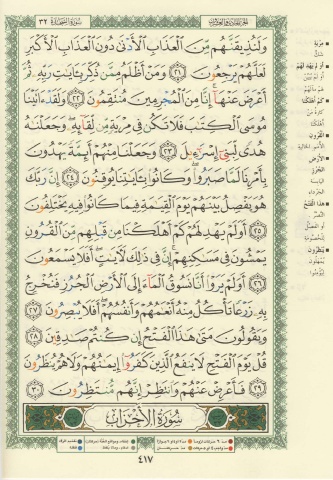 سورة السجدة ٣٢
الجزء الحادي والعشرون
وَلَنُذِيقَنَّهُم مِّنَ ٱلْعَذَابِ ٱلْأَدْنَىٰ دُونَ ٱلْعَذَابِ ٱلْأَكْبَرِ
لَعَلَّهُمْ يَرْجِعُونَ ٢١ وَمَنْ أَظْلَمُ مِمَّن ذُكِّرَ بِـَٔايَٰتِ رَبِّهِۦ ثُمَّ
أَعْرَضَ عَنْهَآ إِنَّا مِنَ ٱلْمُجْرِمِينَ مُنتَقِمُونَ ٢٢ وَلَقَدْ ءَاتَيْنَا
مُوسَى ٱلْكِتَٰبَ فَلَا تَكُن فِى مِرْيَةٍ مِّن لِّقَآئِهِۦ وَجَعَلْنَٰهُ
هُدًى لِّبَنِىٓ إِسْرَٰٓءِيلَ ٢٣ وَجَعَلْنَا مِنْهُمْ أَئِمَّةً يَهْدُونَ
بِأَمْرِنَا لَمَّا صَبَرُوا۟ وَكَانُوا۟ بِـَٔايَٰتِنَا يُوقِنُونَ ٢٤ إِنَّ رَبَّكَ
هُوَ يَفْصِلُ بَيْنَهُمْ يَوْمَ ٱلْقِيَٰمَةِ فِيمَا كَانُوا۟ فِيهِ يَخْتَلِفُونَ
٢٥ أَوَلَمْ يَهْدِ لَهُمْ كَمْ أَهْلَكْنَا مِن قَبْلِهِم مِّنَ ٱلْقُرُونِ
يَمْشُونَ فِى مَسَٰكِنِهِمْ إِنَّ فِى ذَٰلِكَ لَءَايَٰتٍ أَفَلَا يَسْمَعُونَ
٢٦ أَوَلَمْ يَرَوْا۟ أَنَّا نَسُوقُ ٱلْمَآءَ إِلَى ٱلْأَرْضِ ٱلْجُرُزِ فَنُخْرِجُ
بِهِۦ زَرْعًا تَأْكُلُ مِنْهُ أَنْعَٰمُهُمْ وَأَنفُسُهُمْ أَفَلَا يُبْصِرُونَ ٢٧
وَيَقُولُونَ مَتَىٰ هَٰذَا ٱلْفَتْحُ إِن كُنتُمْ صَٰدِقِينَ ٢٨
قُلْ يَوْمَ ٱلْفَتْحِ لَا يَنفَعُ ٱلَّذِينَ كَفَرُوٓا۟ إِيمَٰنُهُمْ وَلَا هُمْ يُنظَرُونَ
٢٩ فَأَعْرِضْ عَنْهُمْ وَٱنتَظِرْ إِنَّهُم مُّنتَظِرُونَ ٣٠
سُورَةُ الأَحْزَابِ
٤١٧
مرية
شك
أو لم يهد لهم
كم أهلكنا
القرون
الأرض الجرز
هذا الفتح
ينظرون